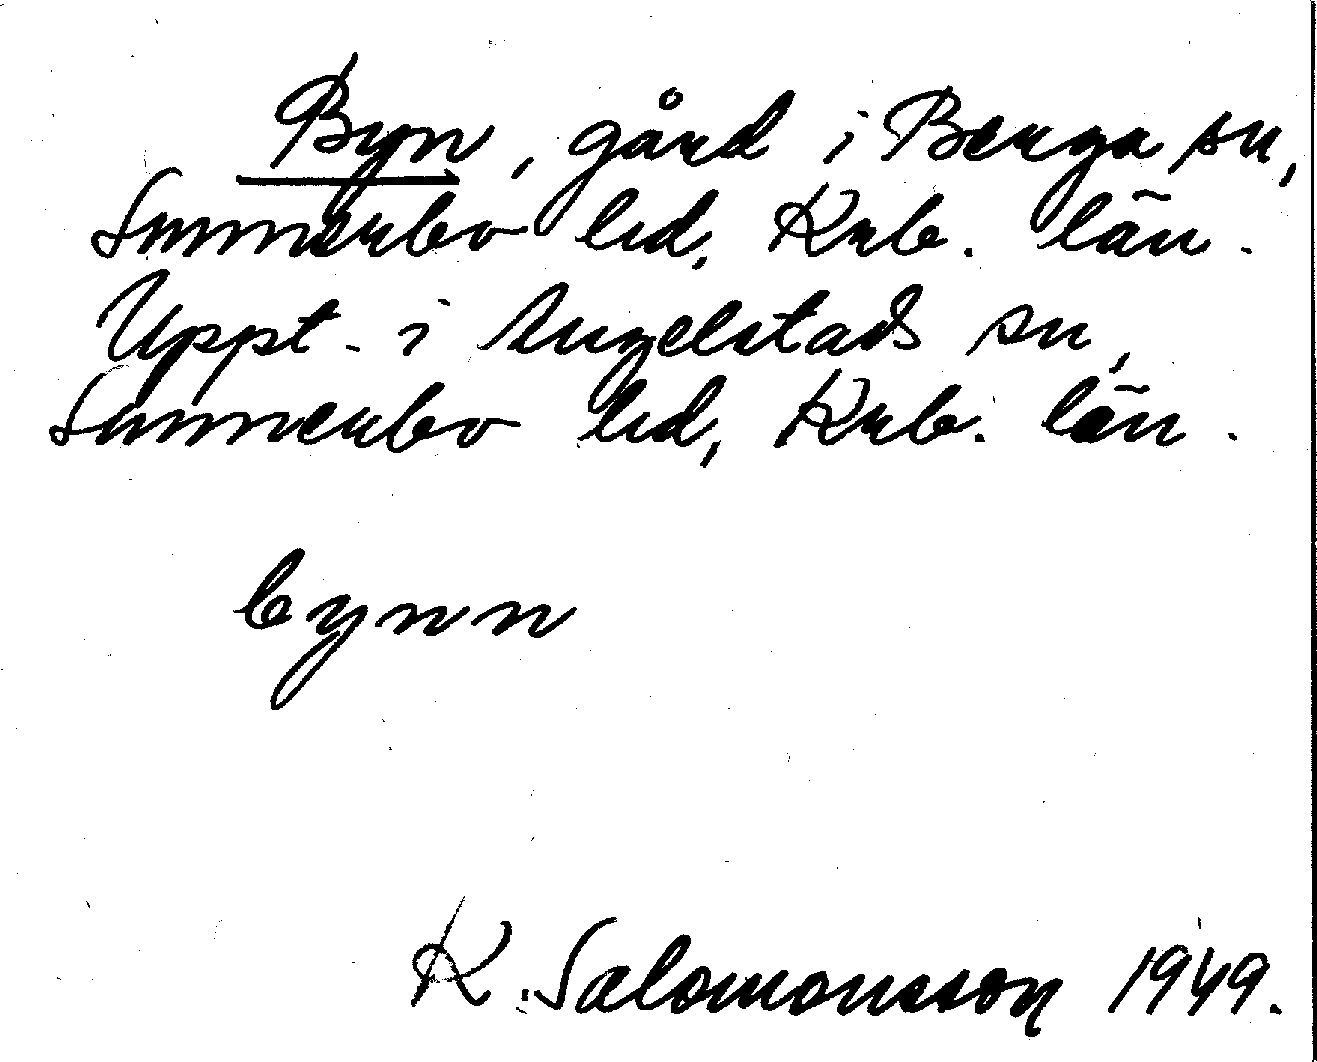 Byn, gård i Berga sn,
Sunnerbo hd, Krb. län.
Uppt. i Angelstads sn,
Sunnerbo hd, Krb. län.
bynn
K. Salomonsson 1949.